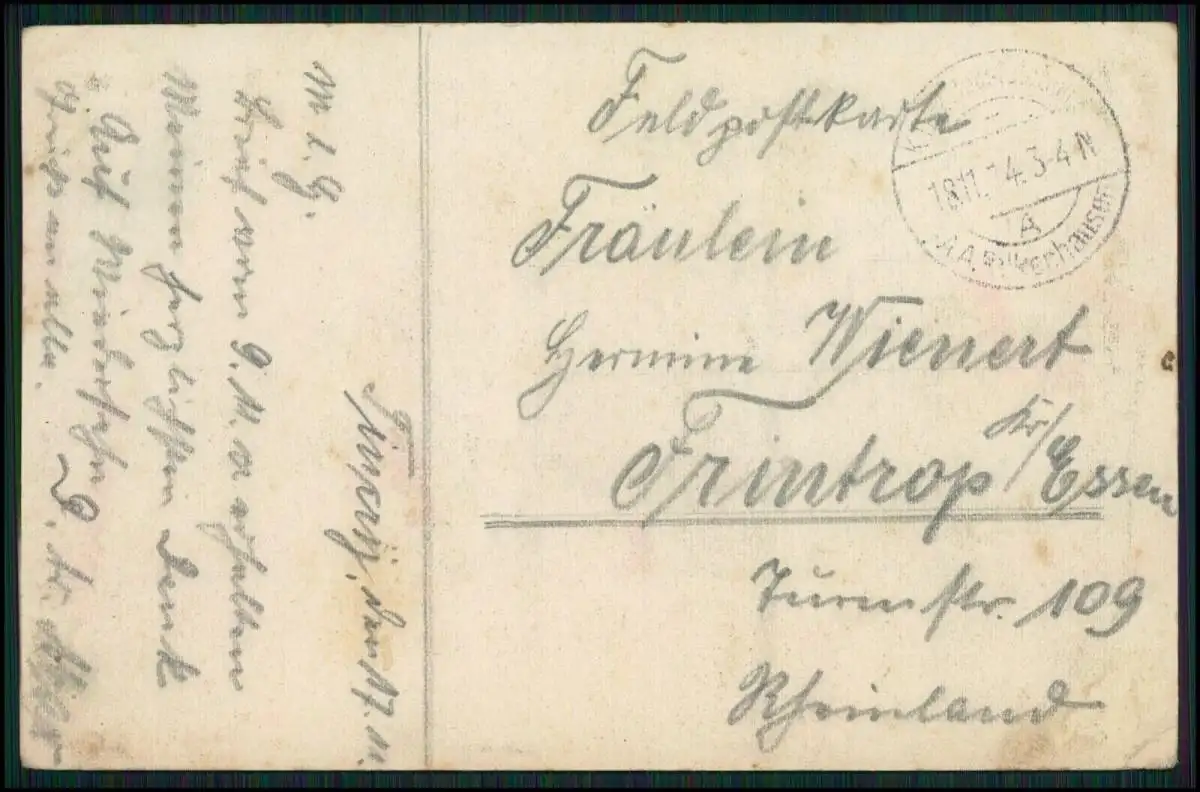 Feldpostkarte
Fräulein
Hermine Wienert
Frintrop Kr/Essen
Turmstr. 109
Rheinland
18.11.14. 3-4 N
A
den 17. 11.
M. l. H.
Brief vom 9. 11. a erhalten
Meinen herzlichsten Dank
Auf Wiedersehn
grüßt an alle.